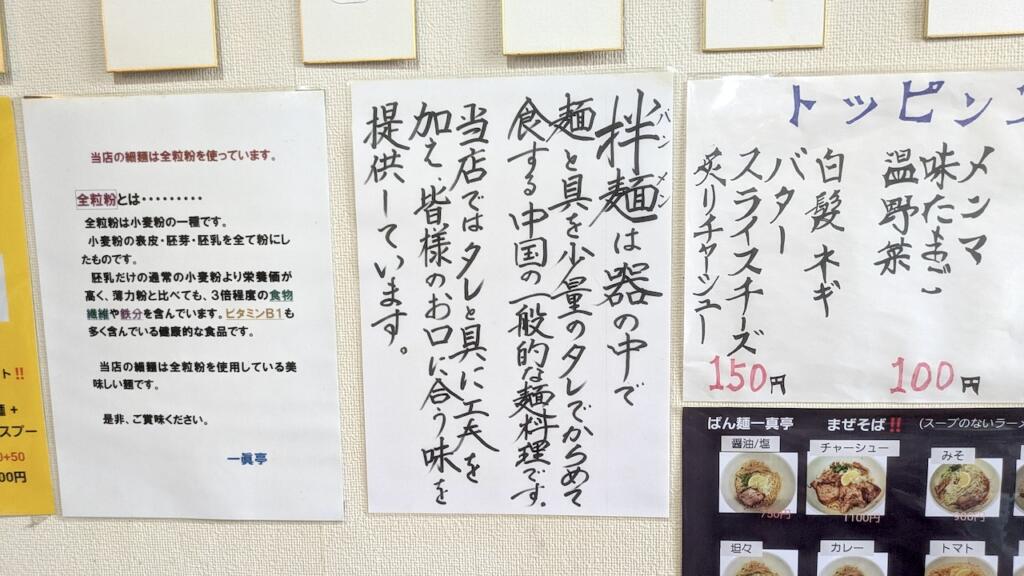 ト!!
麺 +
スプー
0+50
00円
当店の細麺は全粒粉を使っています。
全粒粉とは・・・・・・・・・
全粒粉は小麦粉の一種です。
小麦粉の表皮・胚芽・胚乳を全て粉にし
たものです。
胚乳だけの通常の小麦粉より栄養価が
高く、薄力粉と比べても、3倍程度の食物
繊維や鉄分を含んています。ビタミンB1も
多く含んている健康的な食品です。
当店の細麺は全粒粉を使用している美
味しい麺です。
是非、ご賞味ください。
一眞亭
拌麺は器の中で
バンメン
麺と具を少量のタレでからめて
食する中国の一般的な麺料理です。
当店ではタレと具に工夫を
加え、皆様のお口に合う味を
提供しています。
トッピング
メンマ
味たまご
温野菜
100円
白髪ネギ
バター
スライスチーズ
炙りチャーシュー
150円
ばん麺一真亭
まぜそば!!
(スープのないラーメ
醤油/塩
750円
チャーシュー
1100円
みそ
900円
坦々
カレー
トマト